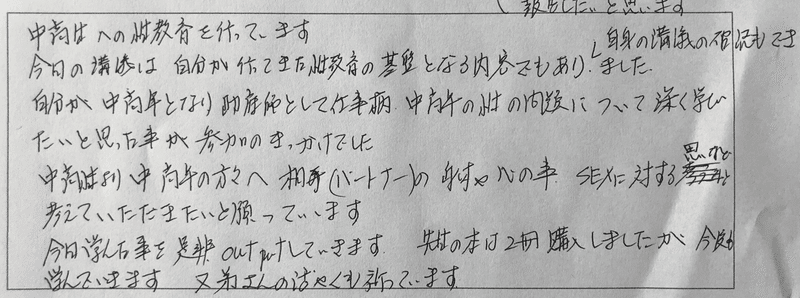 報告したいと思います
中高生への性教育を行っています
今日の講義は自分が行ってきた性教育の基盤となる内容でもあり、自身の講義の確認もでき
ました。
自分が中高年となり助産師として仕事柄、中高年の性の問題について深く学び
たいと思った事が参加のきっかけでした
中高生より中高年の方々へ相手(パートナー)の身体や心の事、SEXに対する思いなど
考えていただきたいと願っています
今日学んだ事を是非outputしていきます 先生の本は2冊購入しましたが今後も
学んでいきます 又 さんの活やくも祈っています